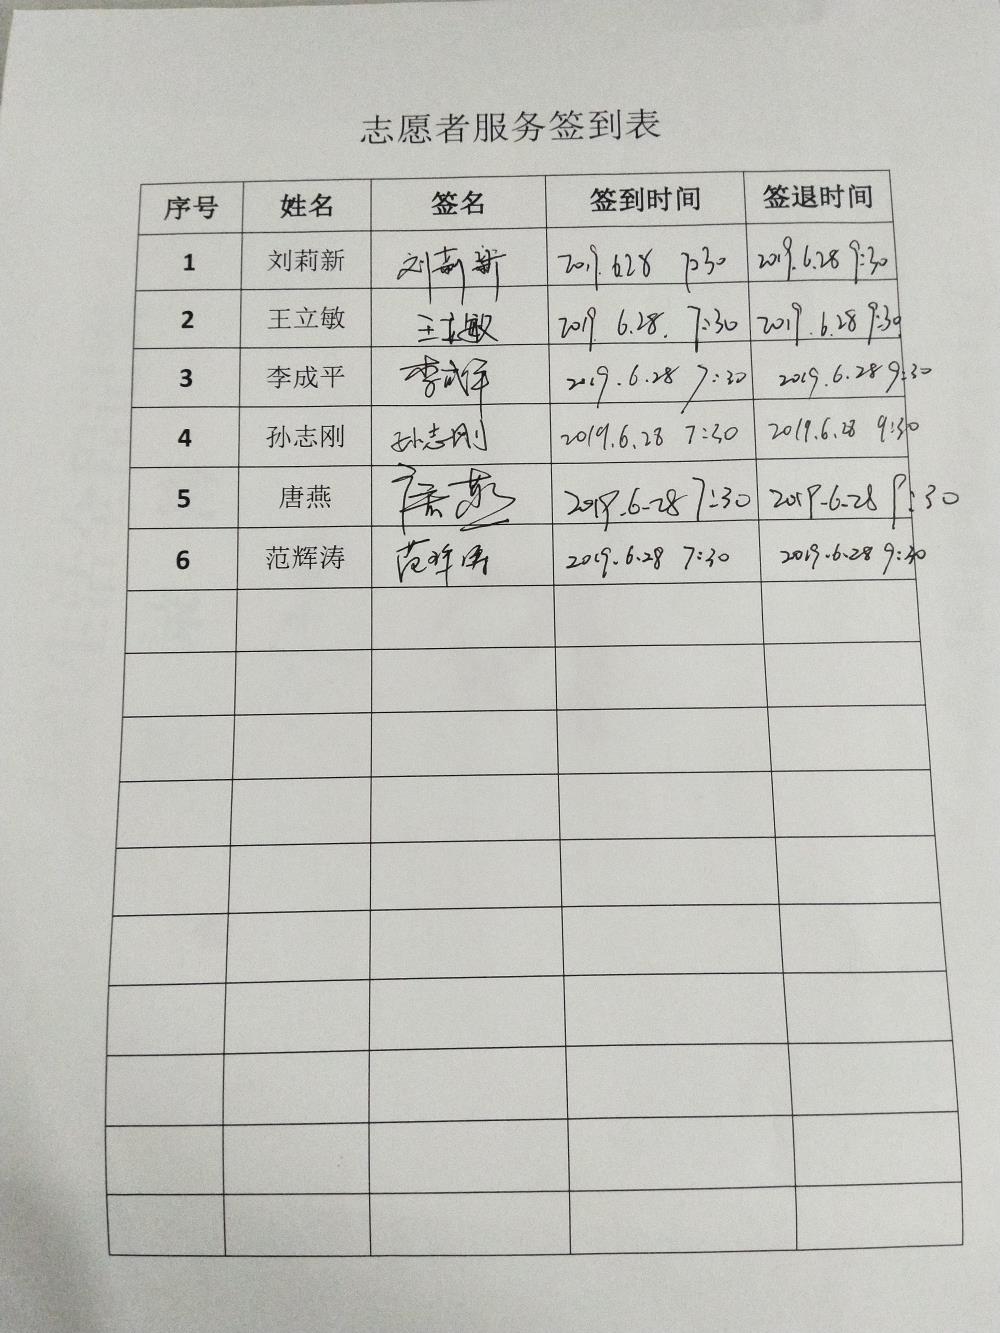 志愿者服务签到表
序号 姓名 签名 签到时间 签退时间
1 刘莉新 刘莉新 2019.628 7:30 2019.6.28 9:30
2 王立敏 王立敏 2019.6.28. 7:30 2019.6.28 9:30
3 李成平 李成平 2019.6.28 7:30 2019.6.28 9:30
4 孙志刚 孙志刚 2019.6.28 7:30 2019.6.28 9:30
5 唐燕 唐燕 2019.6-28 7:30 2019-6-28 9:30
6 范辉涛 范辉涛 2019.6.28 7:30 2019.6.28 9:30